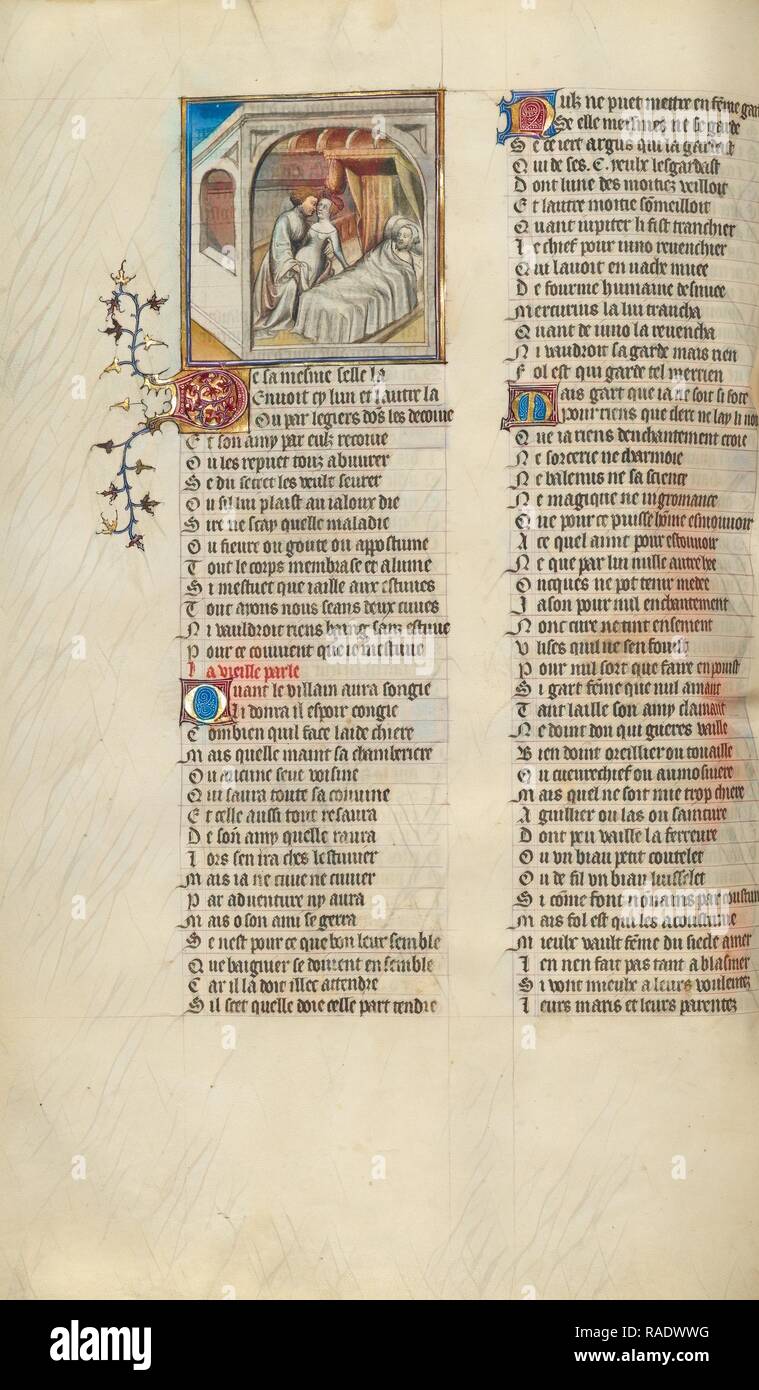 De sa mesme selle la
Envoit cy lun et lautre la
Ou par legiers dōs les decoiue
Et son amy par eulz recoiue
Ou les repuet touz abuurer
Se du secret les veult seurer
Ou sil lui plaist au ialoux die
Sire ne scay quelle maladie
Ou fieure ou goute ou appostume
Tout le corps membrase et alume
Si mestuet que iaille aux estuues
Tout ayons nous seans deux cuues
Ni vauldroit riens baing sans estuue
Pour ce conuient que ie mestuue
La vieille parle
Quant le villain aura songie
Li donra il espoir congie
Combien quil face laide chiere
Mais quelle maint sa chamberiere
Ou aucune seue voisine
Qui saura toute sa conuine
Et celle aussi tout resaura
De son amy quelle raura
Lors sen ira ches lestuuier
Mais ia ne cuue ne cuuier
Par aduenture ny aura
Mais o son ami se gerra
Se nest pour ce que bon leur semble
Que baignier se doiuent ensemble
Car il la doit illec attendre
Sil scet quelle doie celle part tendre
Nulz ne puet mettre en fēme garde
Se elle mesmes ne se garde
Se ce iert argus qui la gardast
Qui de ses .C. yeulx lesgardast
Dont lune des moitiez veilloit
Et lautre moitie sōmeilloit
Quant iupiter li fist tranchier
Le chief pour iuno reuenchier
Qui lauoit en vache muee
De fourme humaine desnuee
Mercurius la lui trancha
Quant de iuno la reuencha
Ni vaudroit sa garde mais rien
Fol est qui garde tel merrien
Mais gart que ia ne soit si sote
pour riens que clerc ne lay li note
Que ia riens denchantement croie
Ne sorcerie ne charmoie
Ne balenus ne sa science
Ne magique ne nigromance
Que pour ce puisse hōme esmouuoir
A ce quel aint pour estouuoir
Ne que par lui nulle autre hee
Oncques ne pot tenir medee
Jason pour nul enchantement
Nonc circe ne tint ensement
Vlixes quil ne sen fouist
Pour nul sort que faire en pouist
Si gart fēme que nul amant
Tant laille son amy clamant
Ne doint don qui gueres vaille
Bien doint oreillier ou touaille
Ou cueurechief ou aumosniere
Mais quel ne soit mie trop chiere
Aguillier ou las ou sainture
Dont peu vaille la ferreure
Ou vn biau petit coutelet
Ou de fil vn biau luisselet
Si cōme font nonains par coustume
Mais fol est qui les acoustume
Mieulx vault fēme du siecle amer
Len nen fait pas tant a blasmer
Si vont mieulx a leurs voulentez
Leurs maris et leurs parentez
a alamy stock photo
alamy
Image ID: RADWWG
www.alamy.com